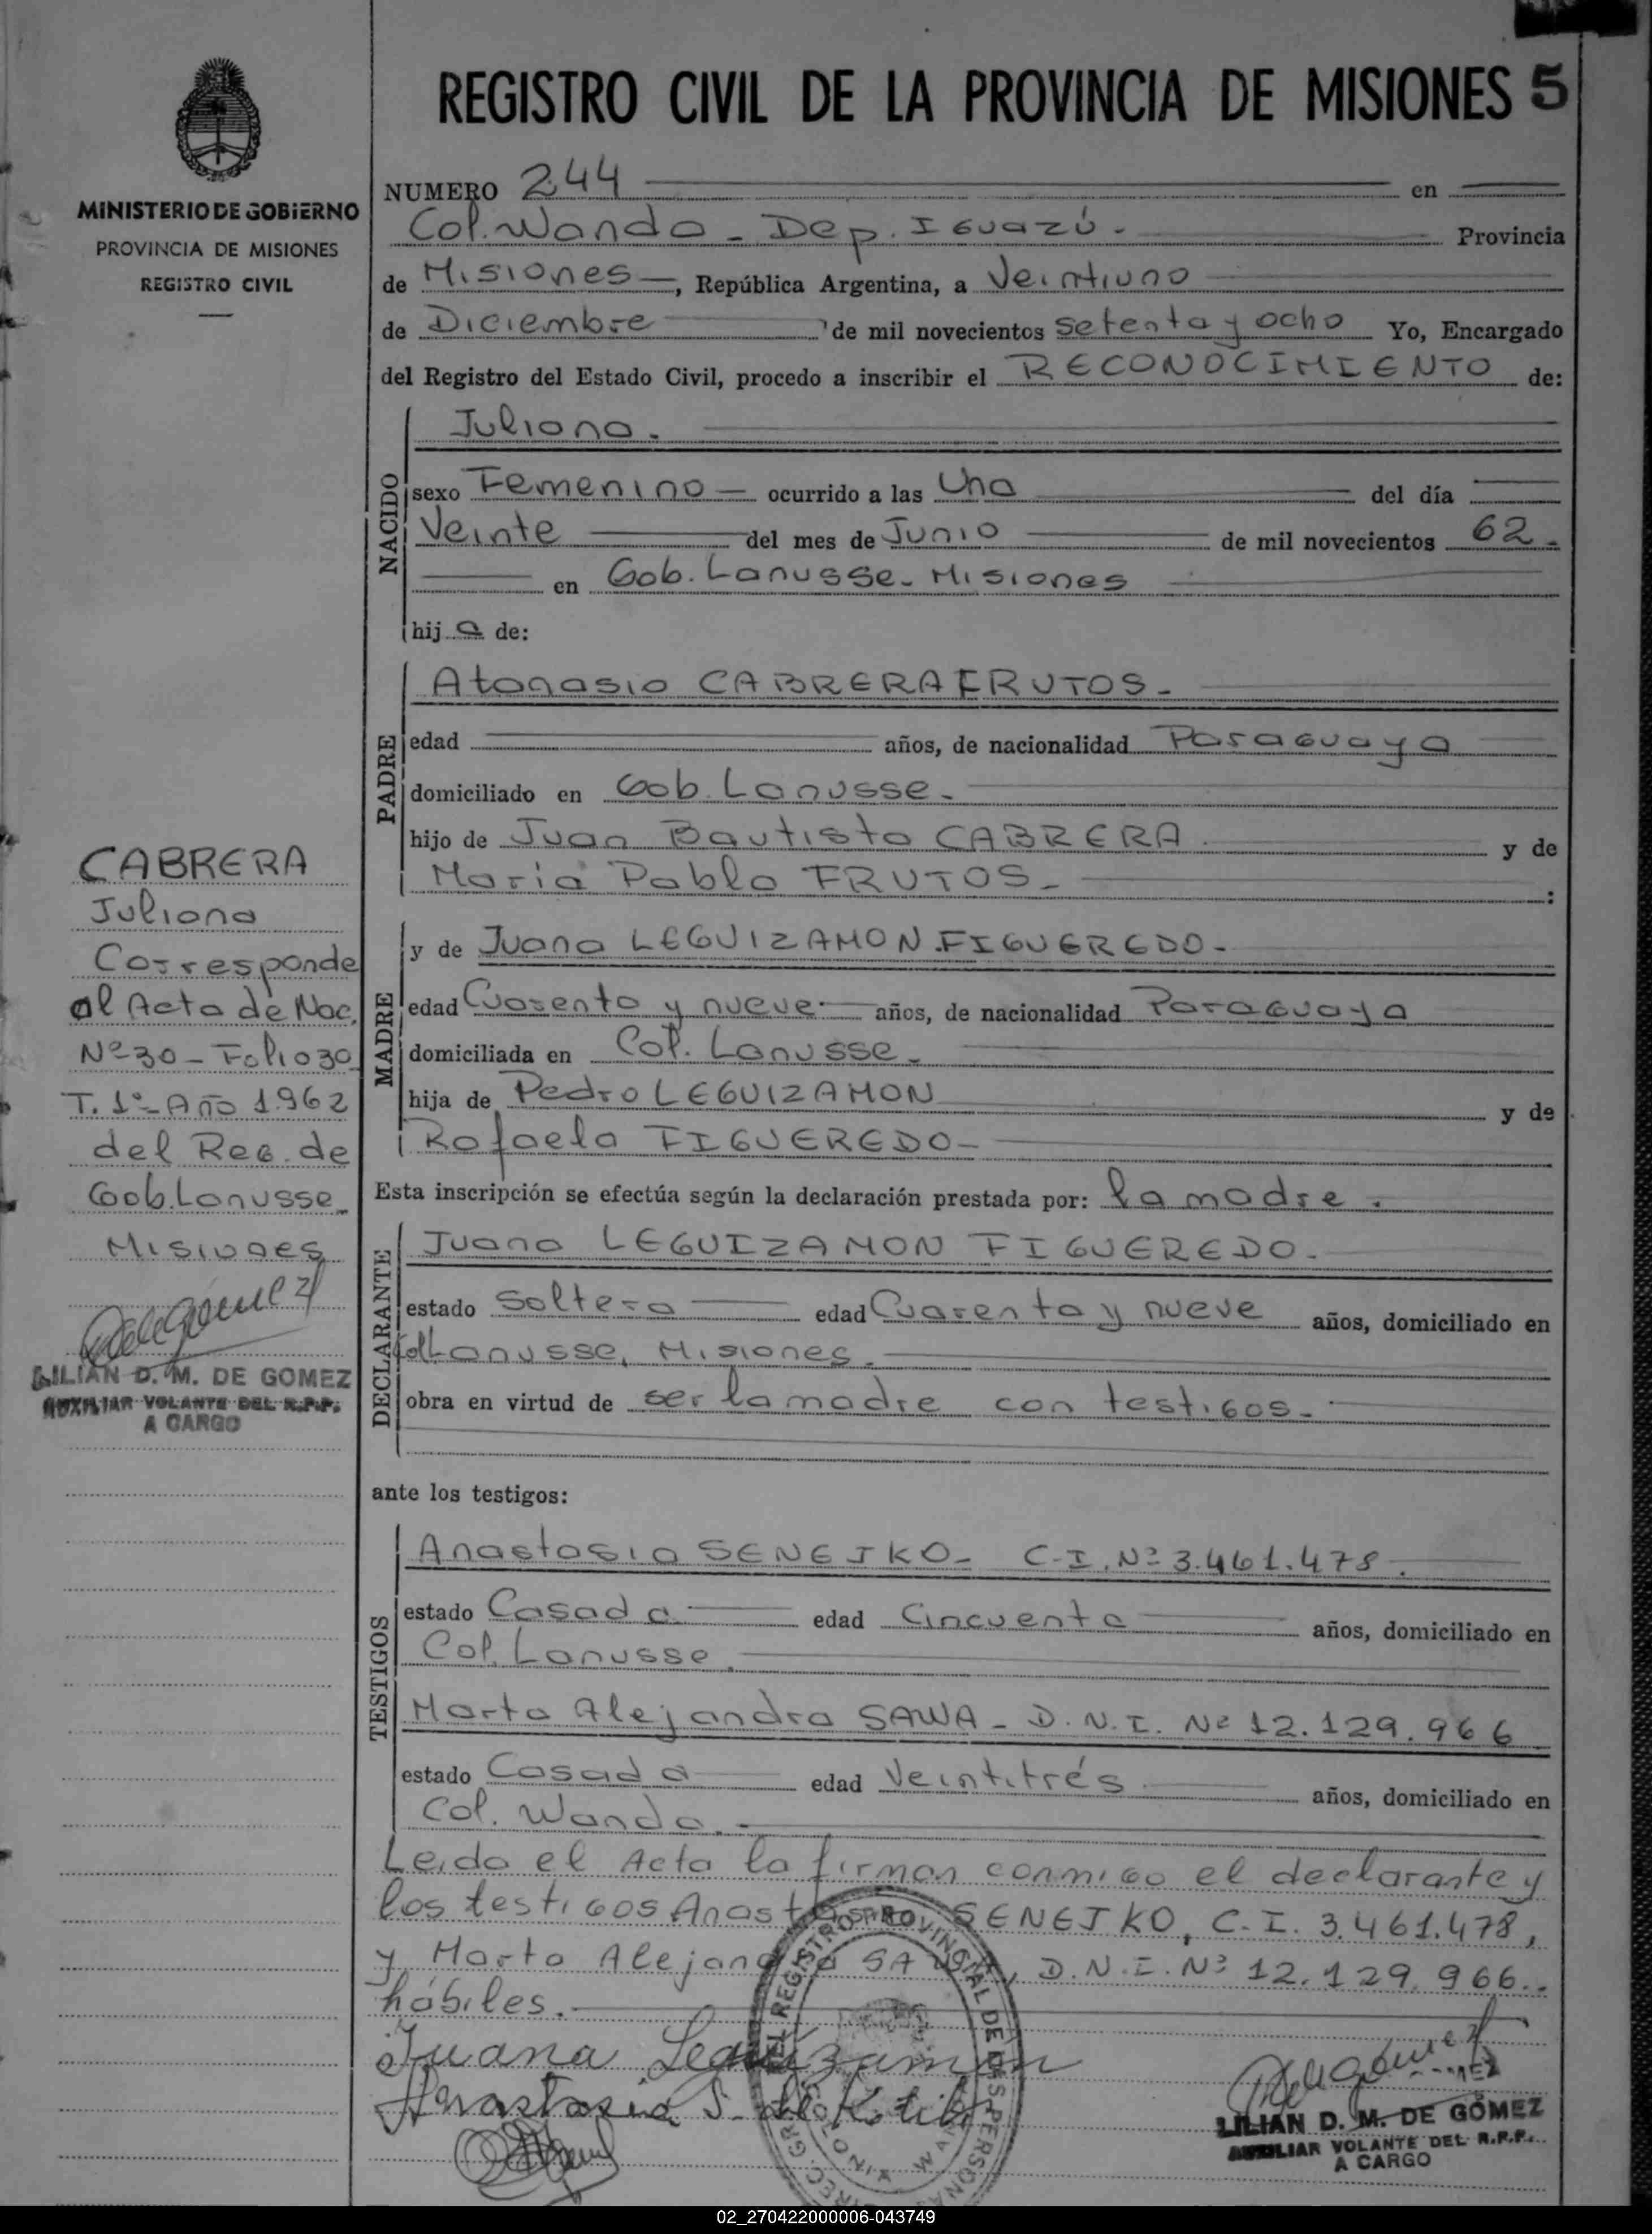 REGISTRO CIVIL DE LA PROVINCIA DE MISIONES 5
MINISTERIO DE GOBIERNO
PROVINCIA DE MISIONES
REGISTRO CIVIL
NUMERO 244 en
Col. Wanda - Dep. IGUAZÚ. Provincia
de Misiones, República Argentina, a Veintiuno
de Diciembre de mil novecientos setenta y ocho Yo, Encargado
del Registro del Estado Civil, procedo a inscribir el RECONOCIMIENTO de:
NACIDO
Juliana.
sexo Femenino ocurrido a las Una del día
Veinte del mes de Junio de mil novecientos 62.
en Gob. Lanusse - Misiones
hija de:
PADRE
Atanasio CABRERA FRUTOS.
edad años, de nacionalidad Paraguaya
domiciliado en Gob. Lanusse.
hijo de Juan Bautista CABRERA y de
María Pabla FRUTOS. :
MADRE
y de Juana LEGUIZAMON FIGUEREDO.
edad Cuarenta y nueve años, de nacionalidad Paraguaya
domiciliada en Col. Lanusse.
hija de Pedro LEGUIZAMON y de
Rafaela FIGUEREDO
Esta inscripción se efectúa según la declaración prestada por: la madre.
DECLARANTE
Juana LEGUIZAMON FIGUEREDO.
estado Soltera edad Cuarenta y nueve años, domiciliado en
Col Lanusse, Misiones.
obra en virtud de ser la madre con testigos.
ante los testigos:
TESTIGOS
Anastasia SENEJKO - C.I. Nº 3.461.478.
estado Casada edad Cincuenta años, domiciliado en
Col. Lanusse.
Marta Alejandra SAWA - D.N.I. Nº 12.129.966
estado Casada edad Veintitrés años, domiciliado en
Col. Wanda.
Leida el Acta la firman conmigo el declarante y
los testigos Anastasia SENEJKO, C.I. 3.461.478,
y Marta Alejandra SAWA, D.N.I. Nº 12.129.966.
hábiles.
Juana Leguizamon
Anastasia S. de
LILIAN D. M. DE GOMEZ
AUXILIAR VOLANTE DEL R.P.P.
A CARGO
CABRERA
Juliana
Corresponde
al Acta de Nac.
Nº 30 - Folio 30
T. 1º - Año 1962
del Reg. de
Gob. Lanusse
Misiones
LILIAN D. M. DE GOMEZ
AUXILIAR VOLANTE DEL R.P.P.
A CARGO
02_270422000006-043749